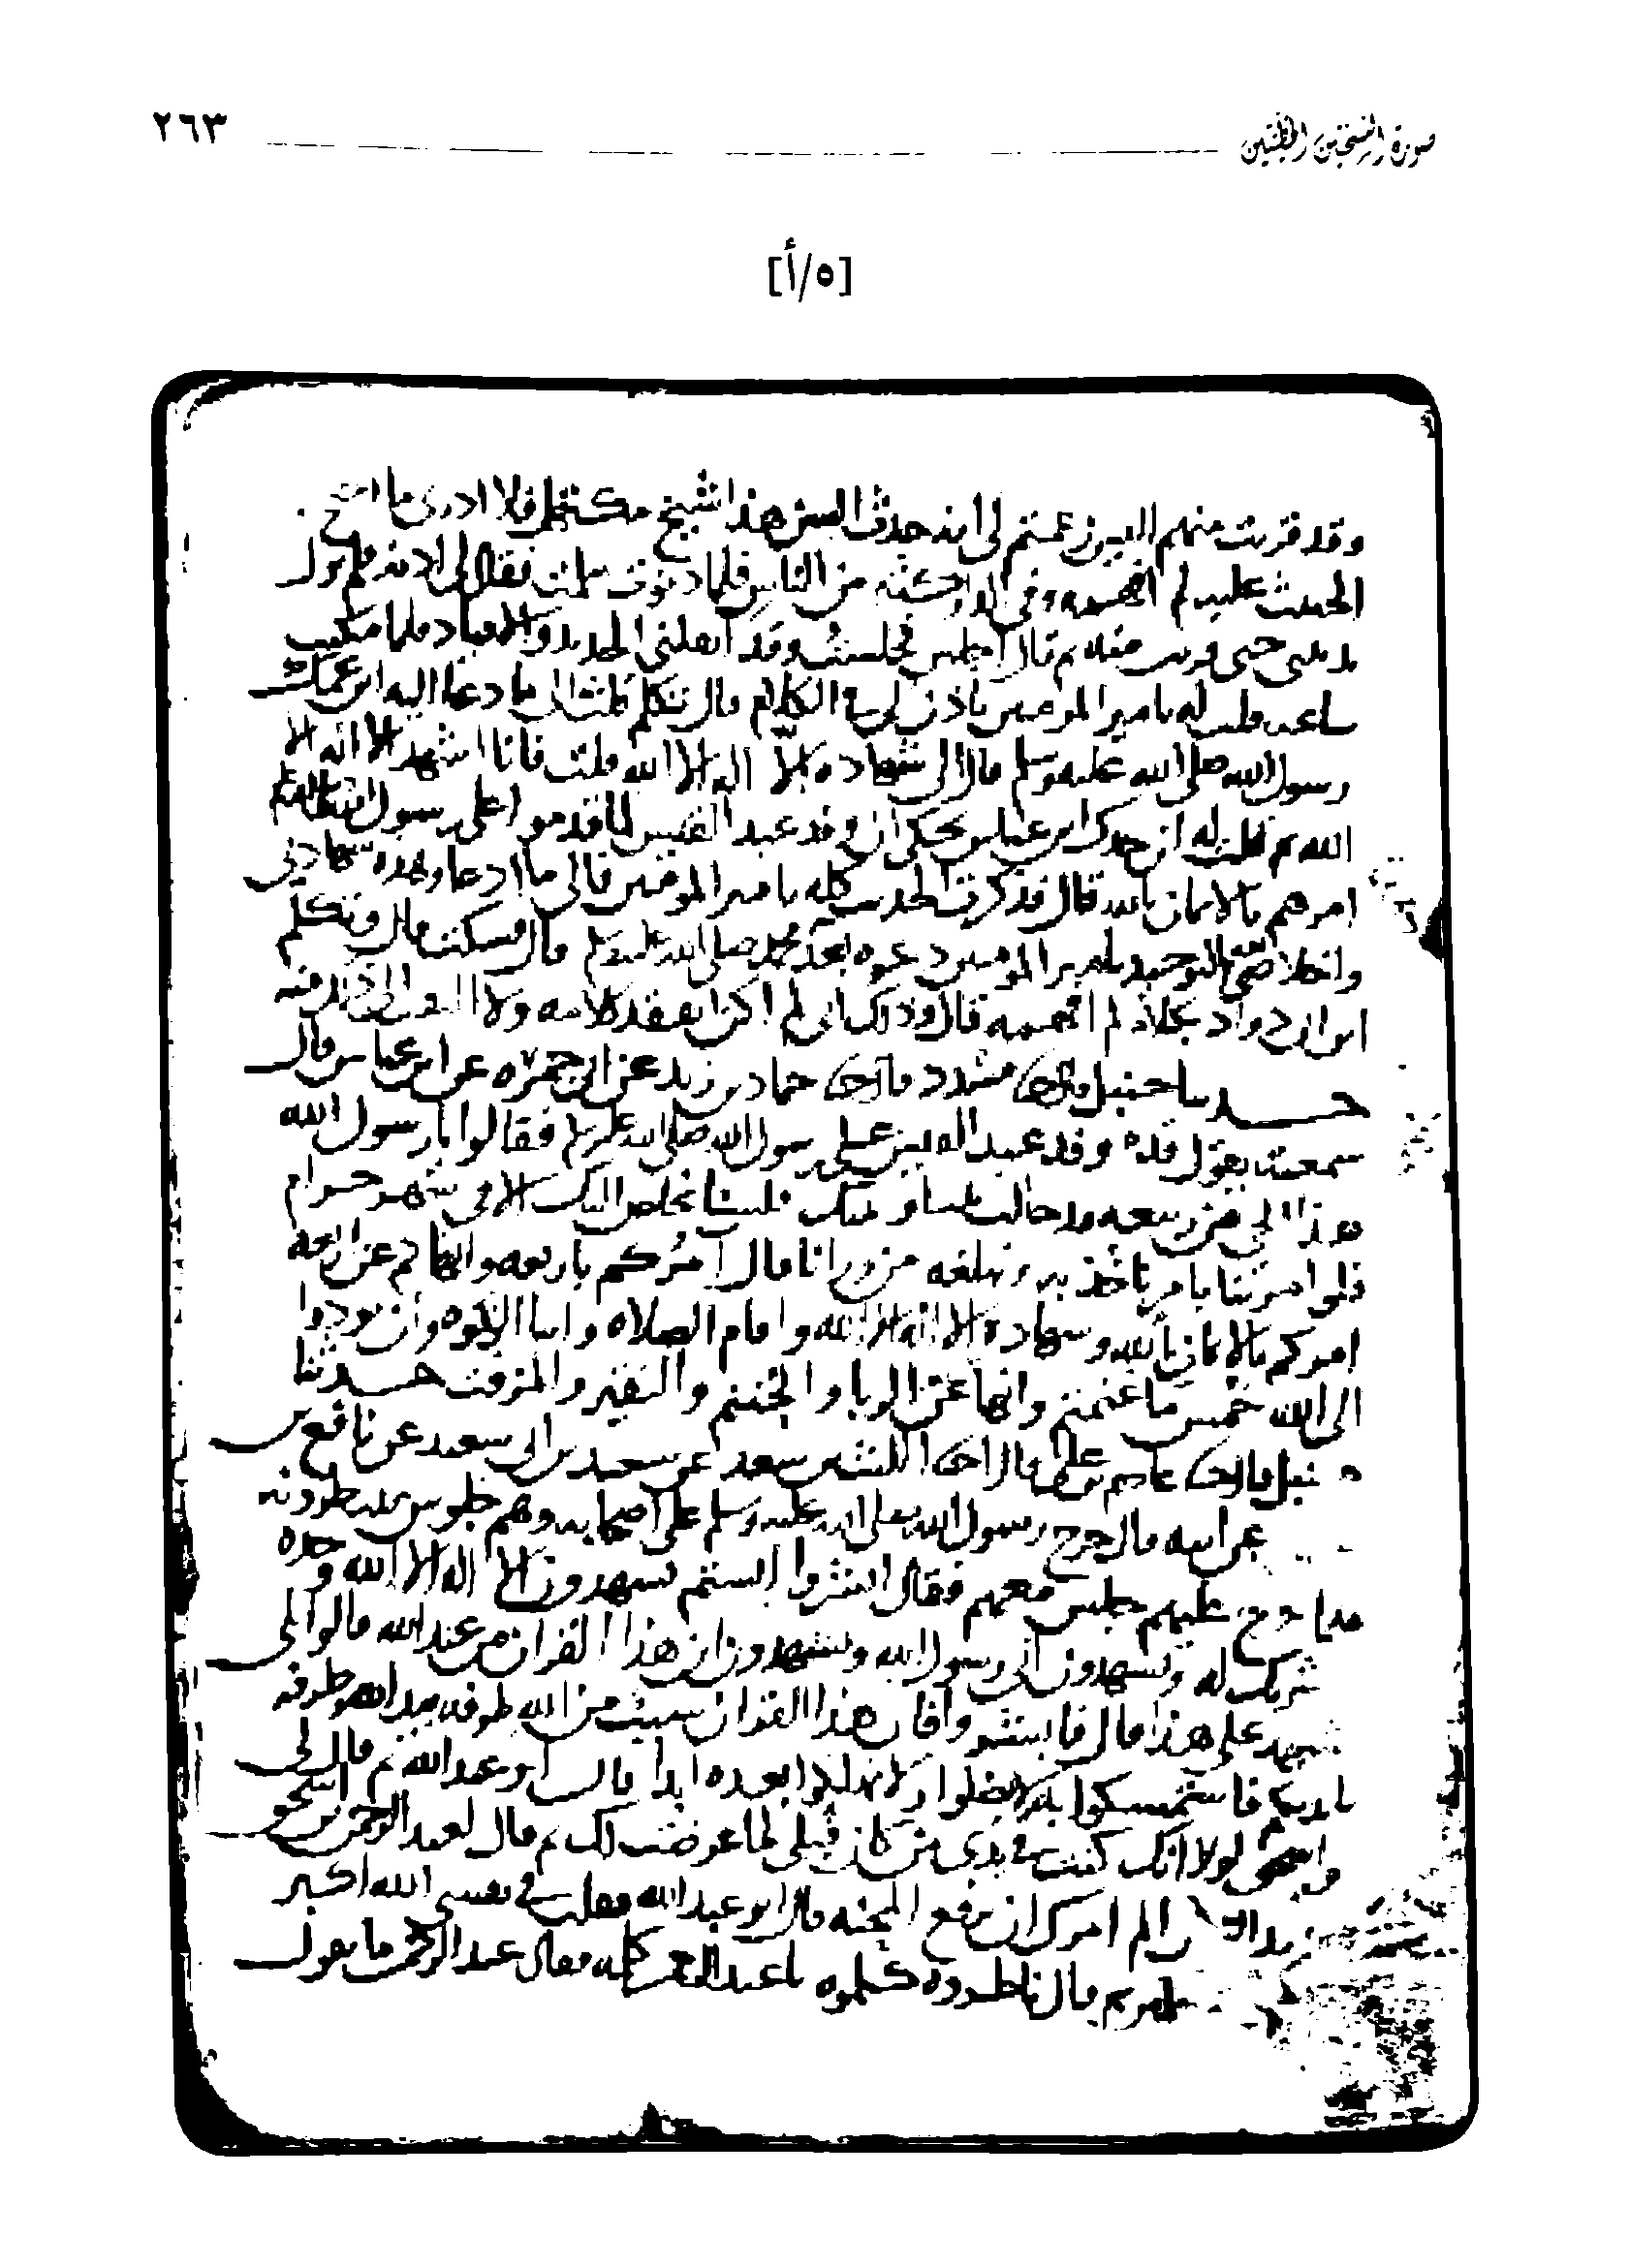 صورة النسختين الخطيتين
٢٦٣
[٥/أ]
وقد قربت منهم اليس زعمتم لى انه حدث السن هذا شيخ مكتهل فلا ادرى ما
الحديث عليه لم افهمه وفى الدار من الناس فلما دنوت سلمت فقال لى ادنه فلم يزل
يدنينى حتى قربت منه ثم قال اجلس فجلست وقد اثقلنى الحديد والاقياد فلما مكثت
ساعه قلت له يامير المومنين تاذن لى فى الكلام قال تكلم قلت الى ما دعا اليه ابن عمك
رسول الله صلى الله عليه وسلم قال الى شهادة الا اله الا الله قلت فانا اشهد الا اله الا
الله ثم قلت له ان جدك ابن عباس يحكى ان وفد عبد القيس لما قدموا على رسول الله
امرهم بالايمان بالله قال فذكرت الحديث كله يامير المومنين فالى ما ادعا وهذه شهادتى
واخلاصى لله التوحيد يامير المومنين دعوه بعد محمد صلى الله عليه وسلم قال فسكت قال وتكلم
ابن ابى دواد بكلام لم افهمه قال وذلك انى لم اكن بعقد كلامه ولا
حدثنا حنبل قال حدثنا مسدد قال حدثنا حماد بن زيد عن ابى جمره عن ابن عباس قال
سمعته يقول قدم وفد عبد القيس على رسول الله صلى الله عليه وسلم فقالوا يا رسول الله
هذا الحى من ربيعه وقد حالت بيننا وبينك فلسنا نخلص اليك الا فى شهر حرام
فلو امرتنا بامر ناخذ به ونبلغه من ورانا قال آمركم باربعه وانهاكم عن اربعه
امركم بالايمان بالله وشهادة الا اله الا الله واقام الصلاه وايتا الزكوه وان تودوا
الى الله خمس ما غنمتم وانها عن الدبا والحنتم والنقير والمزفت حدثنا
حنبل قال حدثنا عاصم بن على قال حدثنا الليث بن سعد عن سعيد بن ابى سعيد عن نافع بن
عن ابيه قال خرج رسول الله صلى الله عليه وسلم على اصحابه وهم جلوس ينتظرونه
فلما خرج عليهم جلس معهم فقال ابشروا الستم تشهدون الا اله الا الله وحده
شريك له وتشهدون انى رسول الله وتشهدون ان هذا القران من عند الله قالوا بلى
نشهد على هذا قال فابشروا فان هذا القران سبب من الله طرفه بيد الله وطرفه
بايديكم فاستمسكوا به لا تضلوا ولا تهلكوا بعده ابدا قال ابو عبد الله ثم قال لى
لولا انك كنت فى يدى من كان قبلى لما عرضت لك ثم قال لعبد الرحمن بن اسحق
الم امرك ان ترفع المحنه قال ابو عبد الله فقلت فى نفسى الله اكبر
ثم قال ناظروه كلموه يا عبد الرحمن كلمه فقال عبد الرحمن ما يقول